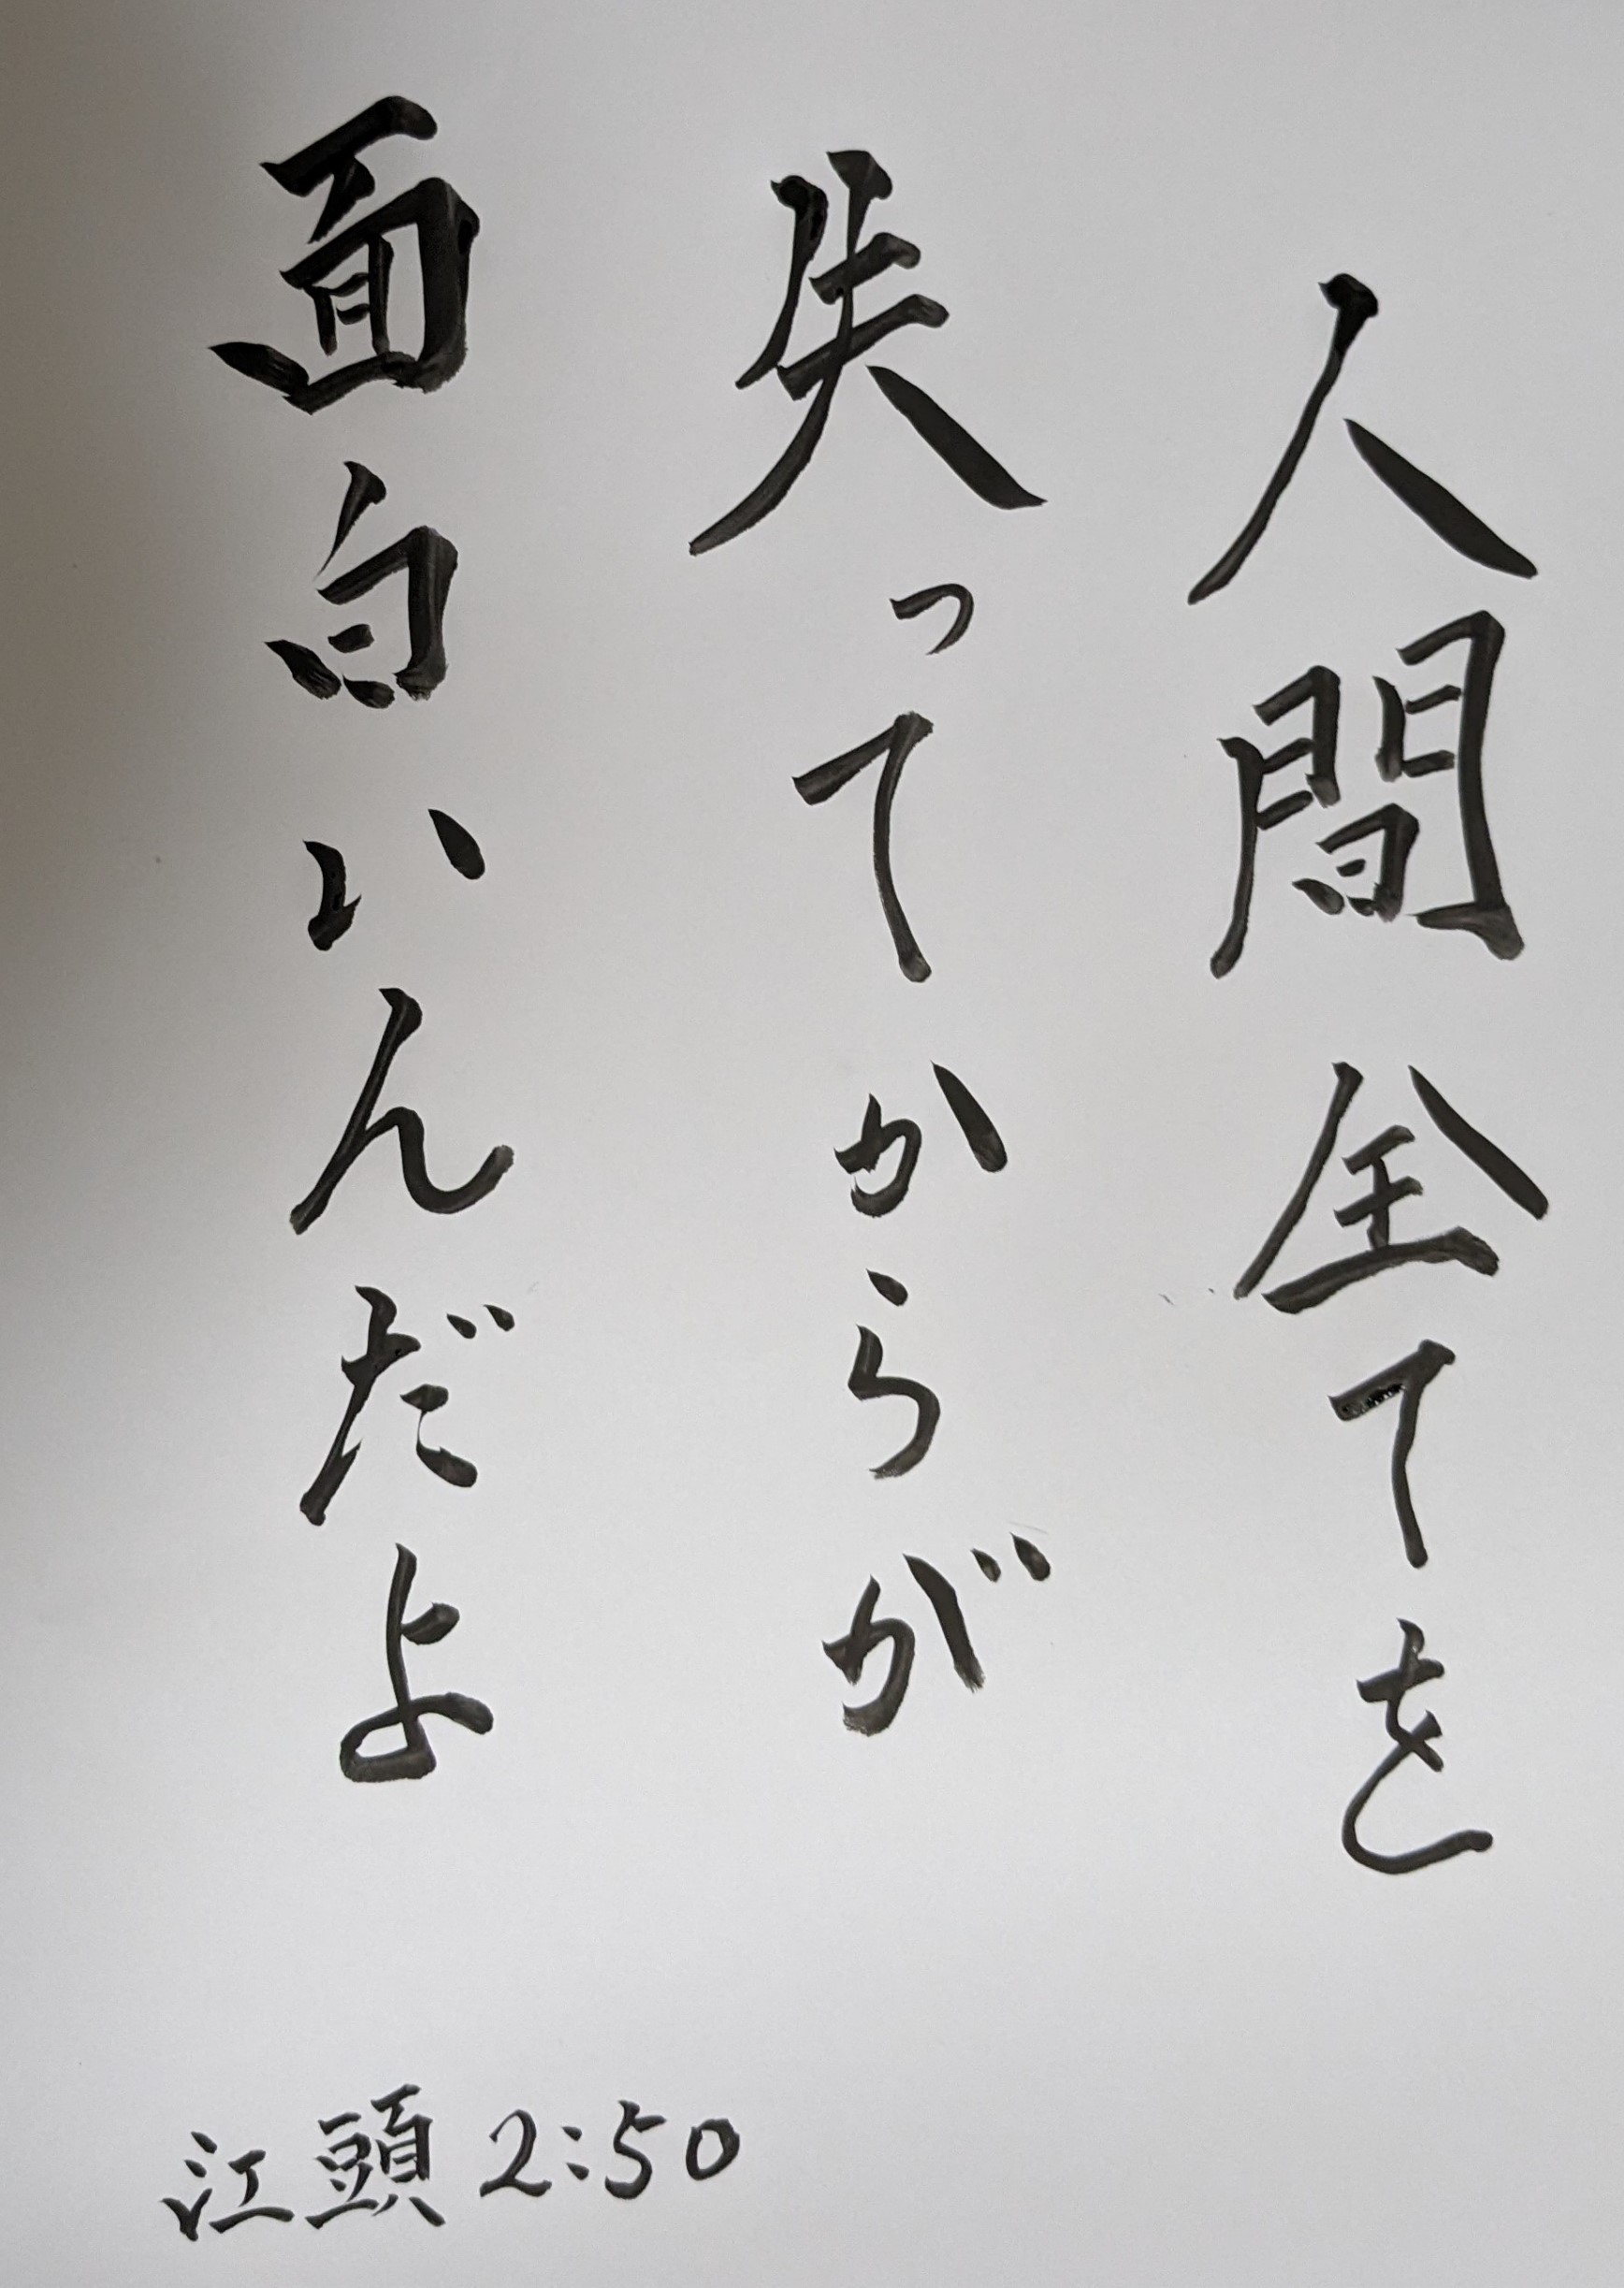 人間全てを
失ってからが
面白いんだよ
江頭2:50